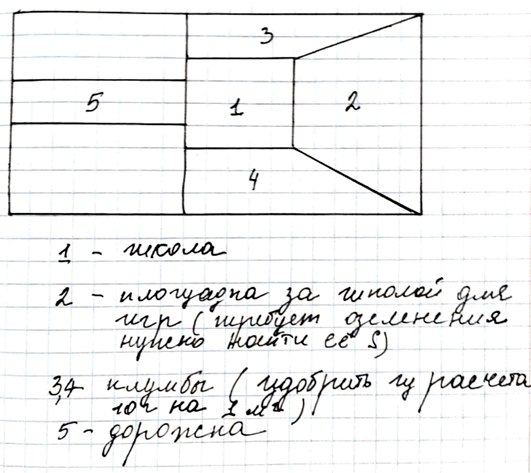 3
5
1
2
4
1 - школа
2 - площадка за школой для
игр (требует озеленения
нужно найти её S)
3,4 клумбы (удобрить из расчета
10г на 1 м²)
5 - дорожка